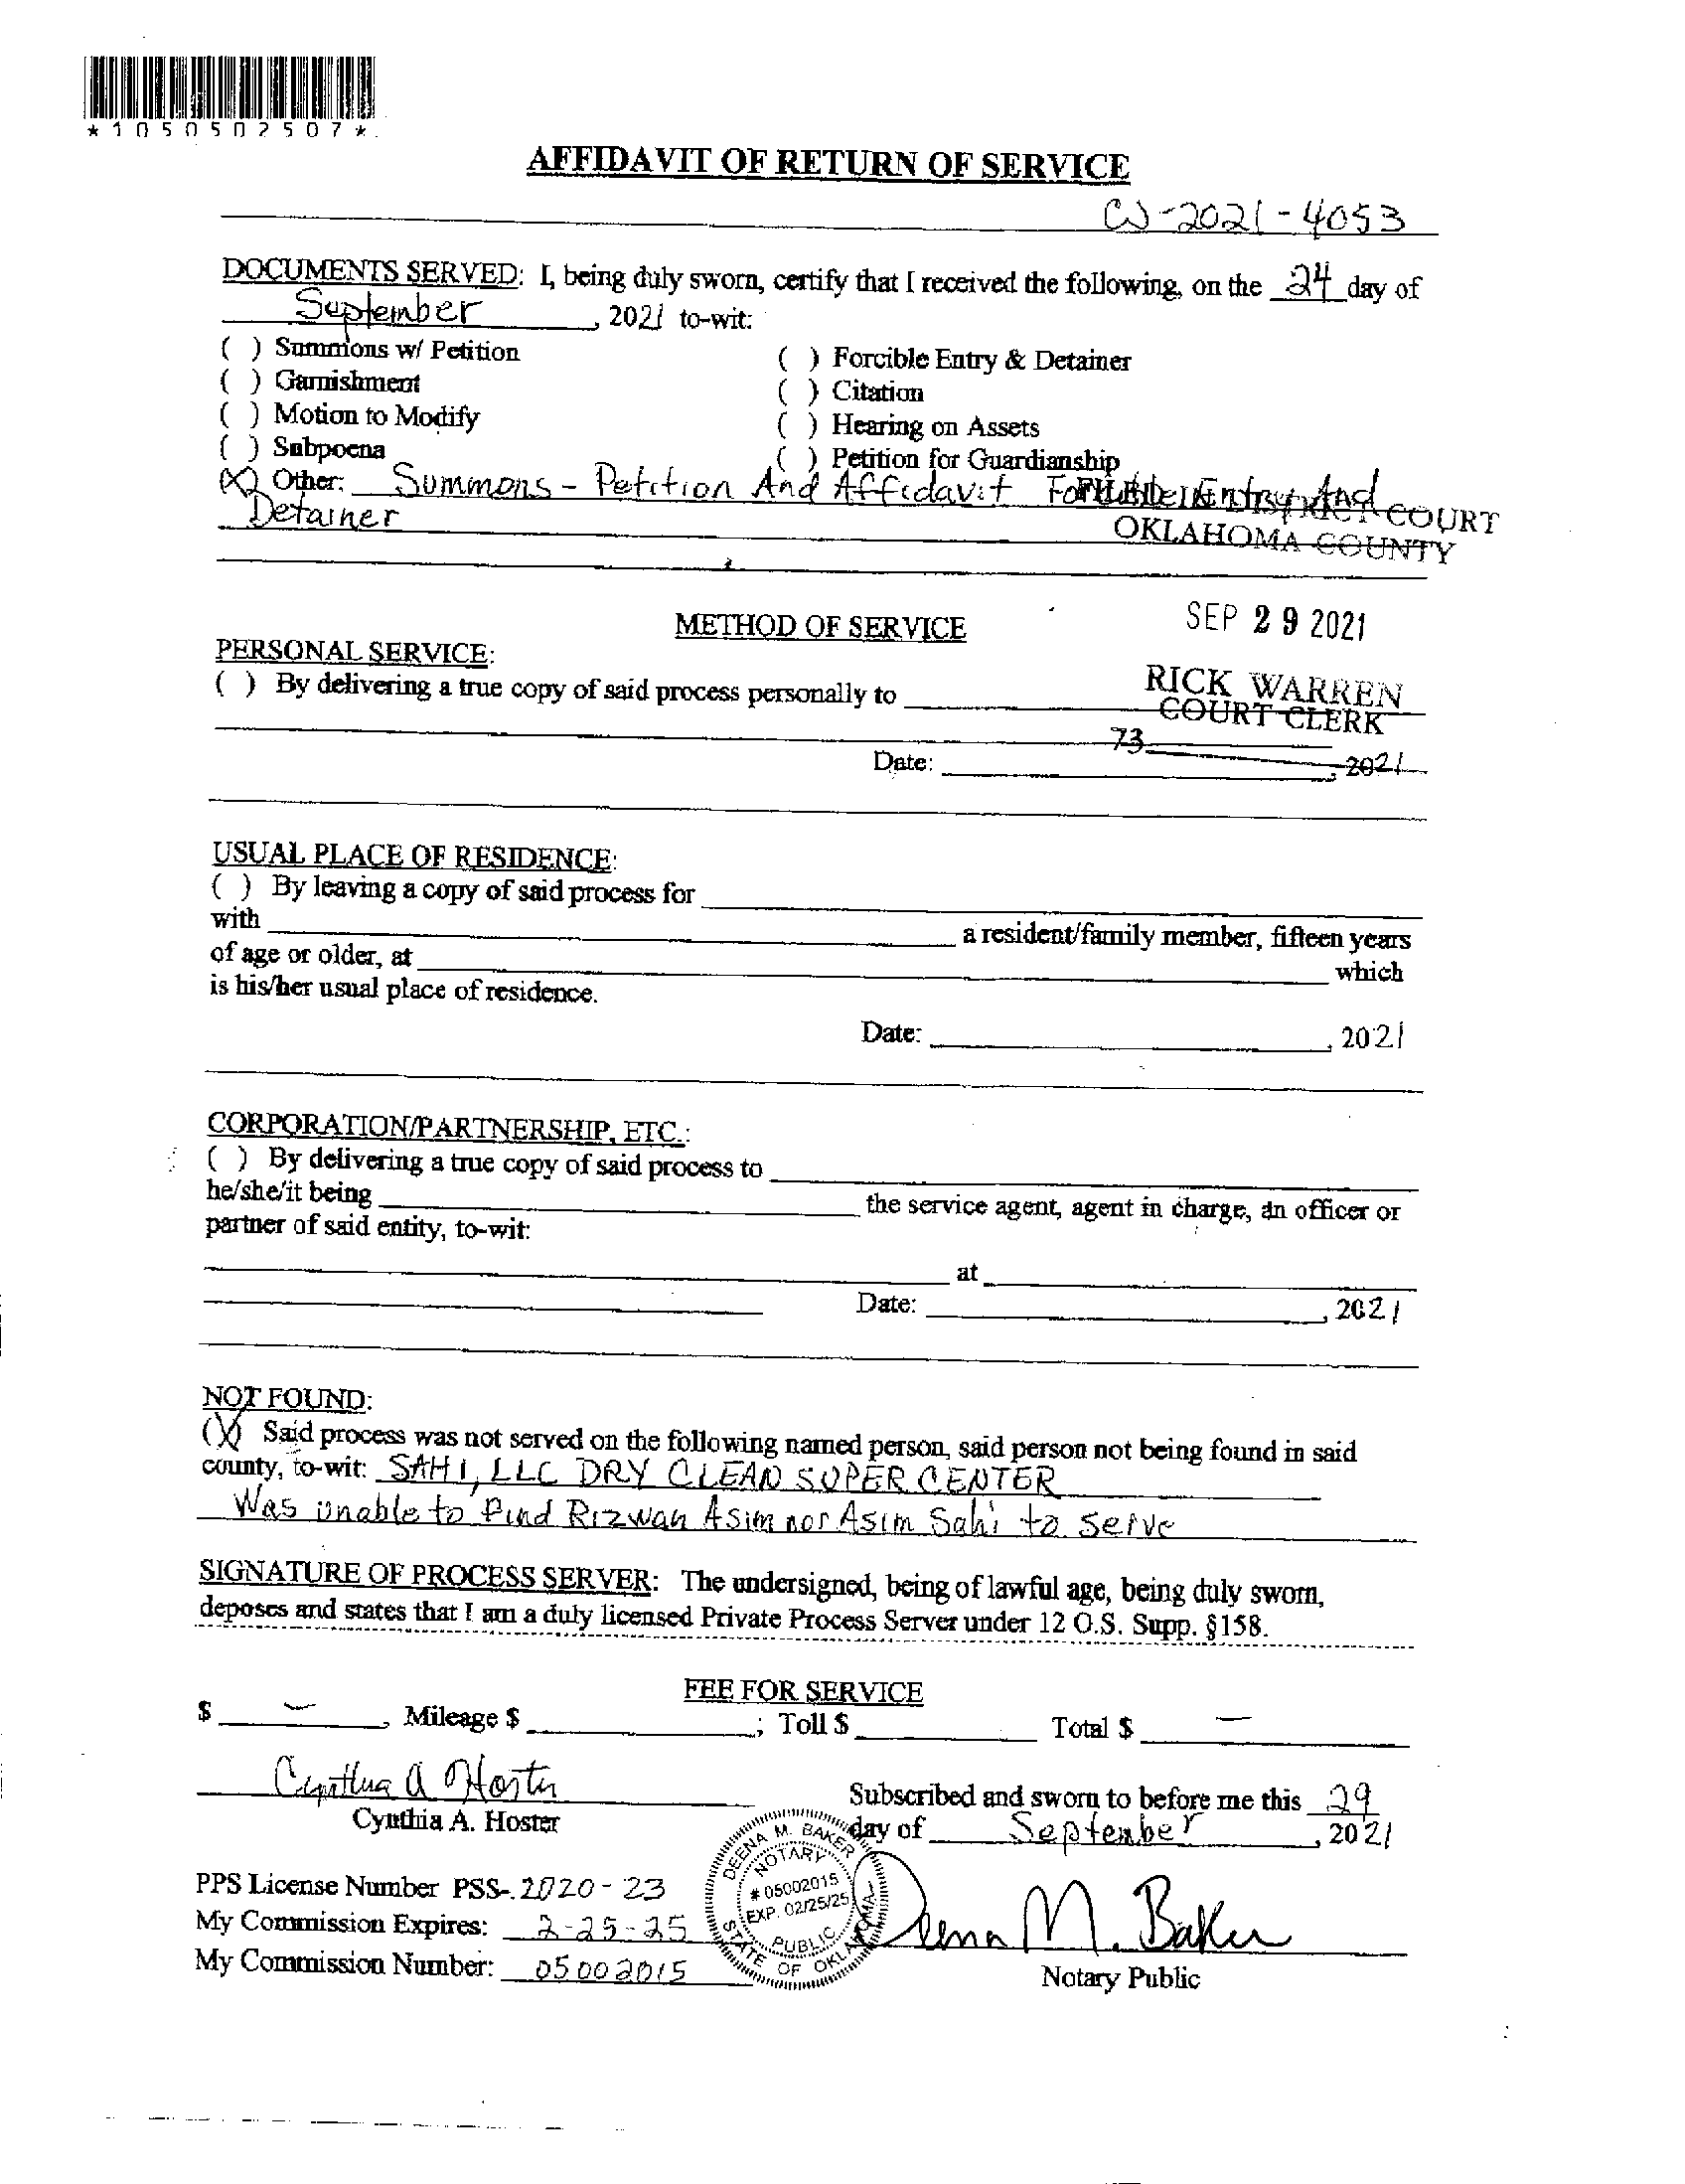 *1050502507*
AFFIDAVIT OF RETURN OF SERVICE
CJ-2021-4053
DOCUMENTS SERVED: I, being duly sworn, certify that I received the following, on the 24 day of
September, 2021 to-wit:
( ) Summons w/ Petition
( ) Forcible Entry & Detainer
( ) Garnishment
( ) Citation
( ) Motion to Modify
( ) Hearing on Assets
( ) Subpoena
( ) Petition for Guardianship
(X) Other: Summons - Petition And Affidavit Forcible Entry And
Detainer
FILED IN DISTRICT COURT
OKLAHOMA COUNTY
SEP 29 2021
METHOD OF SERVICE
PERSONAL SERVICE:
RICK WARREN
COURT CLERK
( ) By delivering a true copy of said process personally to
73
Date: , 2021
USUAL PLACE OF RESIDENCE:
( ) By leaving a copy of said process for
with a resident/family member, fifteen years
of age or older, at which
is his/her usual place of residence.
Date: , 2021
CORPORATION/PARTNERSHIP, ETC.:
( ) By delivering a true copy of said process to
he/she/it being the service agent, agent in charge, an officer or
partner of said entity, to-wit:
at
Date: , 2021
NOT FOUND:
(X) Said process was not served on the following named person, said person not being found in said
county, to-wit: SAHI, LLC DRY CLEAN SUPER CENTER
Was unable to find Rizwan Asim nor Asim Sahi to serve
SIGNATURE OF PROCESS SERVER: The undersigned, being of lawful age, being duly sworn,
deposes and states that I am a duly licensed Private Process Server under 12 O.S. Supp. §158.
FEE FOR SERVICE
$ — , Mileage $ ; Toll $ Total $ —
Cynthia A Hoster
Cynthia A. Hoster
Subscribed and sworn to before me this 29
day of September, 2021
DEENA M. BAKER
NOTARY
# 05002015
EXP. 02/25/25
PUBLIC
STATE OF OKLAHOMA
PPS License Number PSS-2020-23
My Commission Expires: 2-25-25
My Commission Number: 05002015
Deena M. Baker
Notary Public